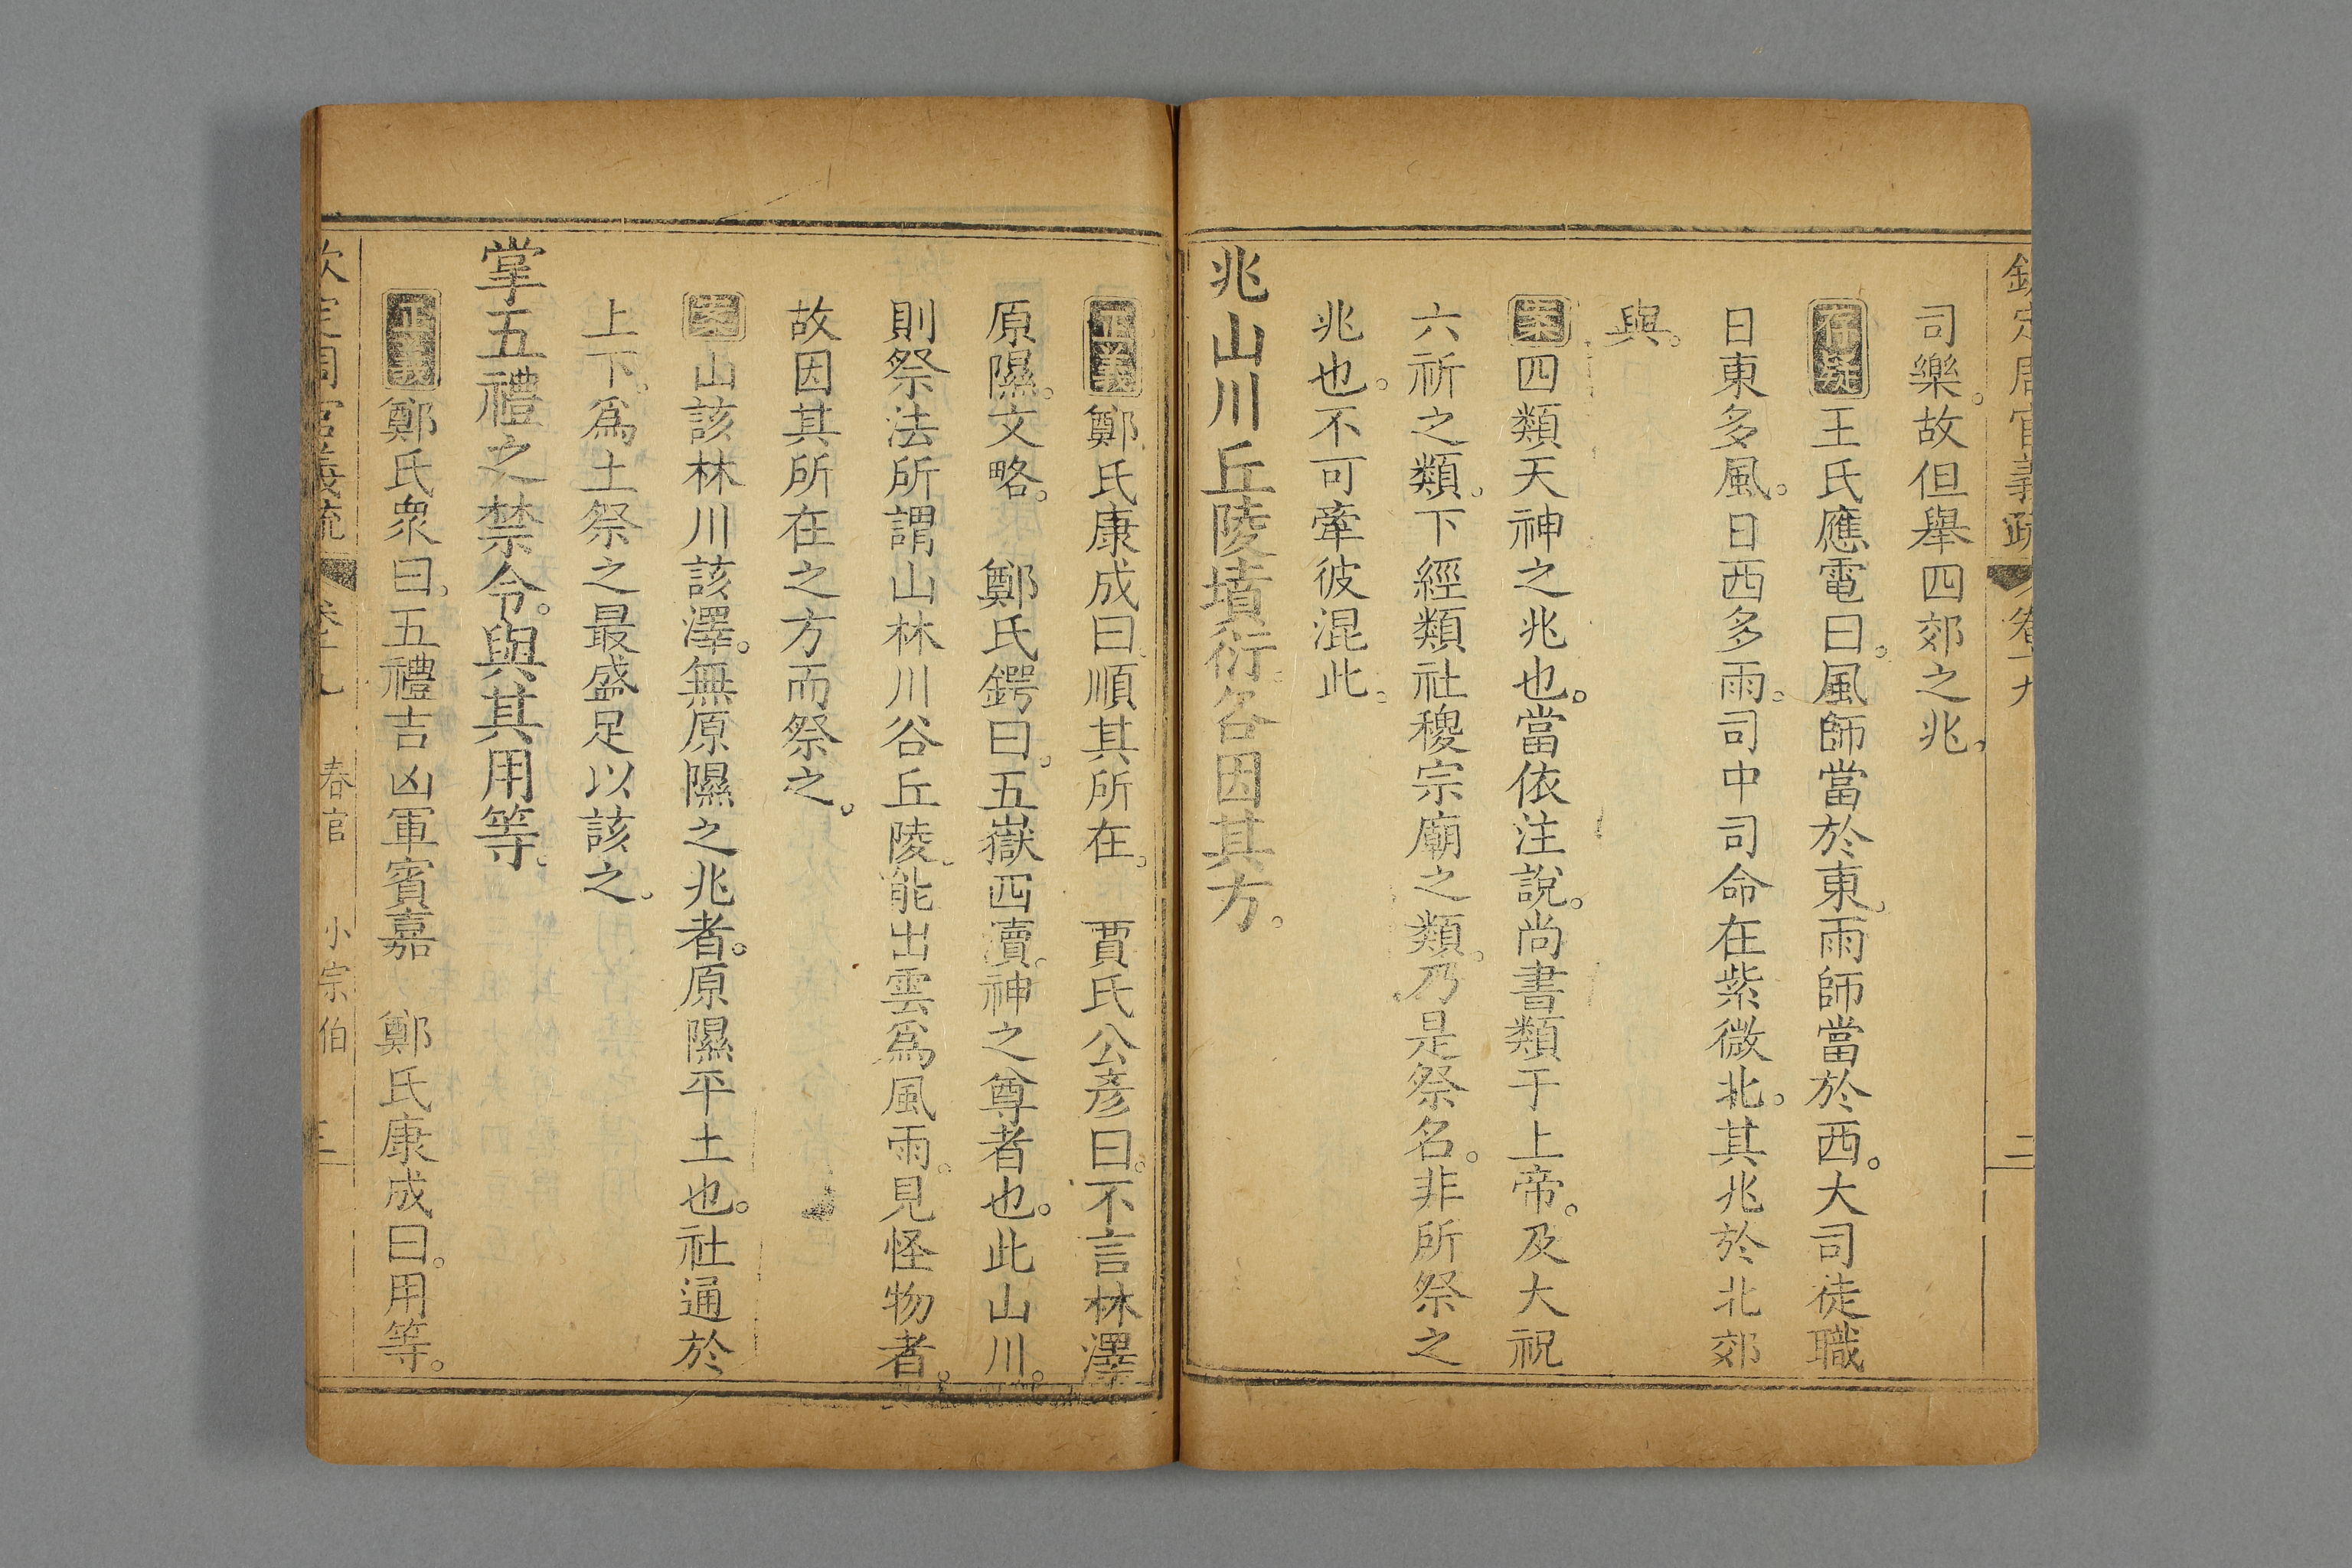 欽定周官義疏 卷十九 二
司樂。故但舉四郊之兆。
存疑王氏應電曰。風師當於東。雨師當於西。大司徒職
日東多風。日西多雨。司中司命在紫微北。其兆於北郊
與。
案四類天神之兆也。當依注說。尚書類于上帝。及大祝
六祈之類。下經類社稷宗廟之類。乃是祭名。非所祭之
兆也。不可牽彼混此。
兆山川丘陵墳衍各因其方。
正義鄭氏康成曰。順其所在。 賈氏公彥曰。不言林澤
原隰。文略。 鄭氏鍔曰。五嶽四瀆。神之尊者也。此山川。
則祭法所謂山林川谷丘陵。能出雲爲風雨。見怪物者。
故因其所在之方而祭之。
案山該林川該澤。無原隰之兆者。原隰平土也。社通於
上下。爲土祭之最盛足以該之。
掌五禮之禁令。與其用等。
正義鄭氏衆曰。五禮吉凶軍賓嘉 鄭氏康成曰。用等。
欽定周官義疏 卷十九 春官 小宗伯 三